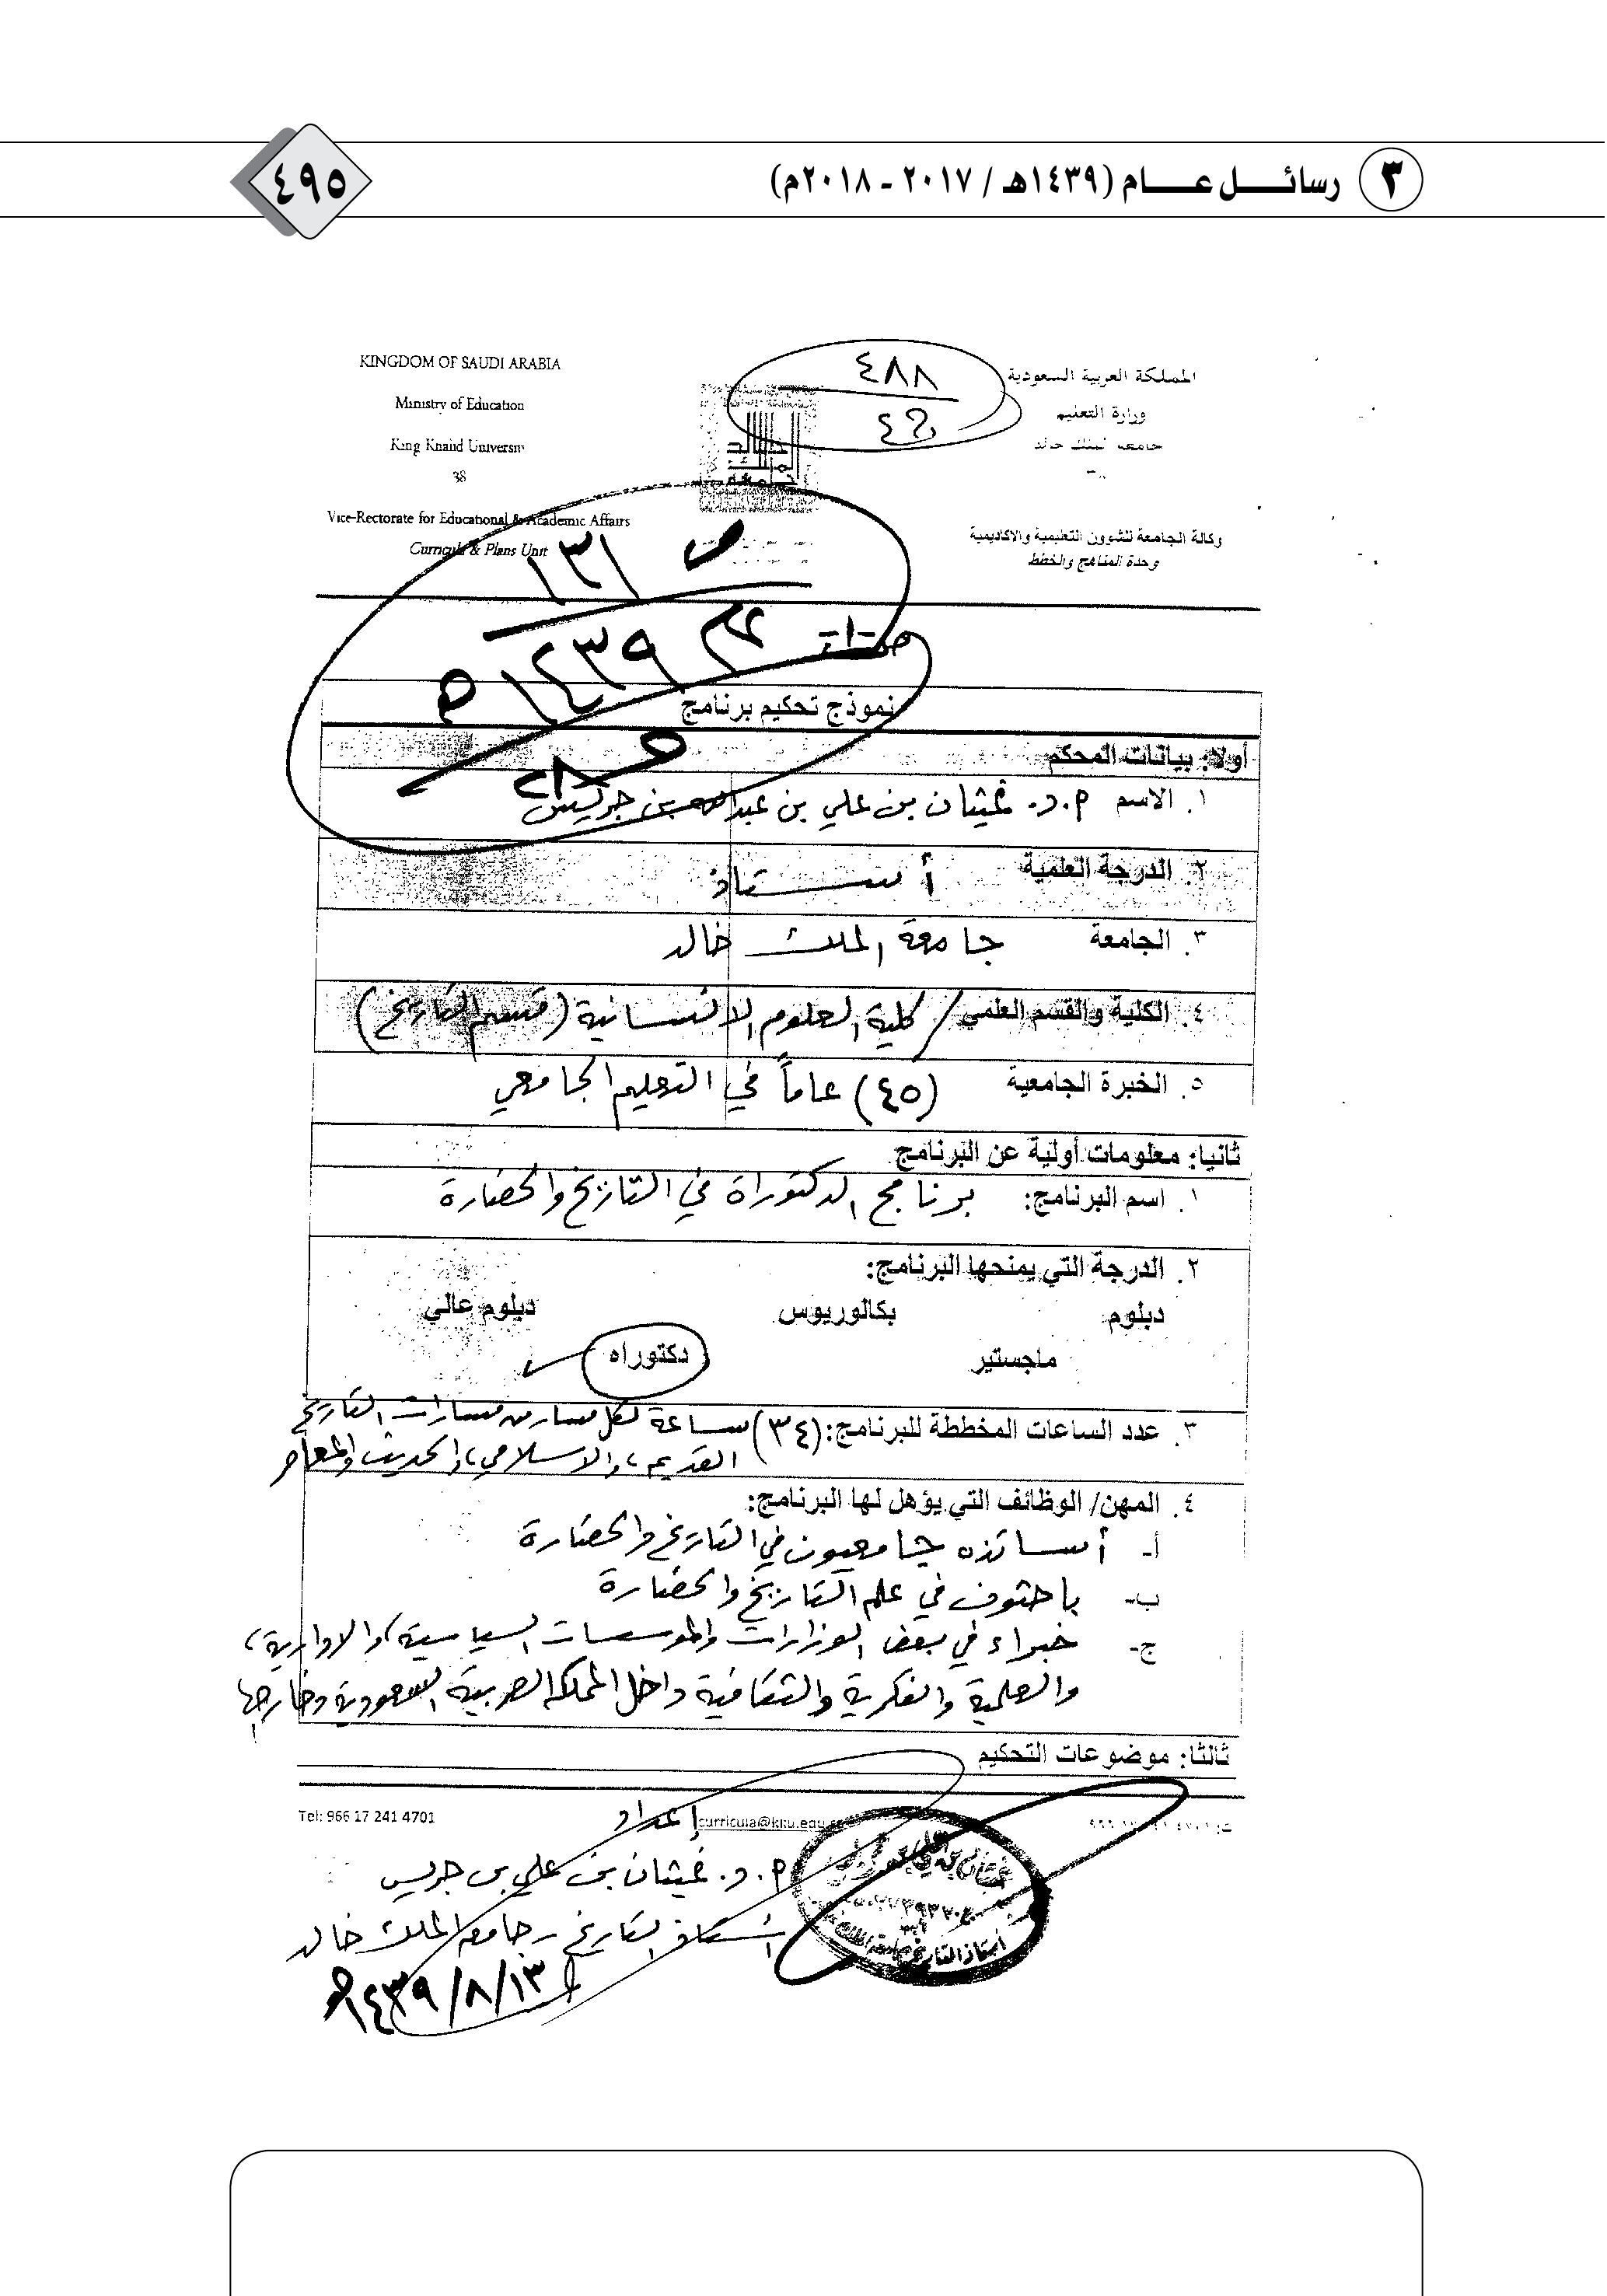 ٣ رسائل عام (١٤٣٩هـ / ٢٠١٧ - ٢٠١٨م)
٤٩٥
KINGDOM OF SAUDI ARABIA
Ministry of Education
King Khalid University
38
Vice-Rectorate for Educational & Academic Affairs
Curricula & Plans Unit
٤٨٨
المملكة العربية السعودية
وزارة التعليم
جامعة الملك خالد
وكالة الجامعة للشؤون التعليمية والاكاديمية
وحدة المناهج والخطط
ص ١٣١
١٤٣٩هـ
نموذج تحكيم برنامج
أولا: بيانات المحكم
١. الاسم م.د. غيثان بن علي بن عبدالله بن جريس
٢. الدرجة العلمية أستاذ
٣. الجامعة جامعة الملك خالد
٤. الكلية والقسم العلمي / كلية العلوم الانسانية (قسم التاريخ)
٥. الخبرة الجامعية (٤٥) عاماً في التعليم الجامعي
ثانيا: معلومات أولية عن البرنامج
١. اسم البرنامج: برنامج الدكتوراة في التاريخ والحضارة
٢. الدرجة التي يمنحها البرنامج:
دبلوم بكالوريوس دبلوم عالي
ماجستير دكتوراه
٣. عدد الساعات المخططة للبرنامج: (٣٤) ساعة لكل مسار من مسارات التاريخ
القديم، والاسلامي، والحديث والمعاصر
٤. المهن/ الوظائف التي يؤهل لها البرنامج:
أ- أساتذه جامعيون في التاريخ والحضارة
ب- باحثون في علم التاريخ والحضارة
ج- خبراء في بعض الوزارات والمؤسسات السياسية، والادارية،
والعلمية والفكرية والثقافية داخل المملكة العربية السعودية وخارجها
ثالثا: موضوعات التحكيم
Tel: 966 17 241 4701
curricula@kku.edu
إعداد
م.د. غيثان بن علي بن جريس
أستاذ التاريخ بجامعة الملك خالد
١٤٣٩/٨/١٣هـ